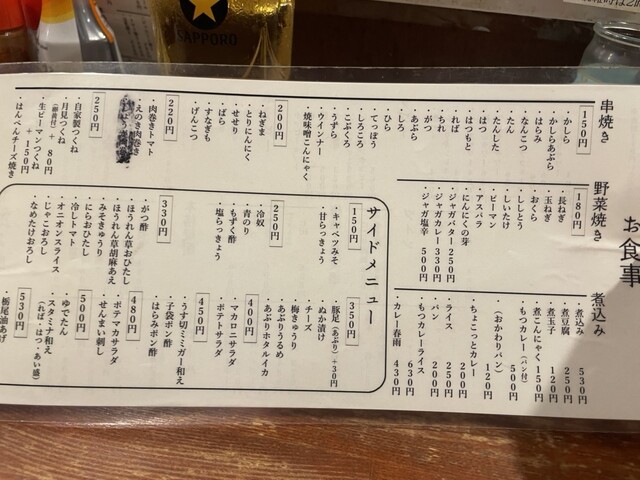 SAPPORO
お食事
串焼き
150円
・かしら
・かしらあぶら
・はらみ
・なんこつ
・たん
・たんもと
・はつ
・はつもと
・れば
・ちれ
・がつ
・あぶら
・しろ
・ひら
・てっぽう
・しろころ
・こぶくろ
・うずら
・ウインナー
・焼味噌こんにゃく
200円
・ねぎま
・とりにんにく
・せせり
・ばら
・すなぎも
・げんこつ
220円
・肉巻きトマト
・えのき肉巻き
250円
・自家製つくね
・月見つくね
(卵黄付) + 80円
・生ピーマンつくね
+ 150円
・はんぺんチーズ焼き
野菜焼き
180円
・長ねぎ
・玉ねぎ
・おくら
・ししとう
・しいたけ
・ピーマン
・アスパラ
・にんにくの芽
・ジャガバター 250円
・ジャガカレー 330円
・ジャガ塩辛 500円
煮込み
・煮込み 530円
・煮豆腐 250円
・煮玉子 120円
・煮こんにゃく 150円
・もつカレー(パン付) 500円
(おかわりパン) 120円
・ちょこっとカレー 200円
・ライス 250円
・パン 200円
・もつカレーライス 630円
・カレー春雨 430円
サイドメニュー
150円
・キャベツみそ
・甘らっきょう
250円
・冷奴
・青のり
・もずく酢
・塩らっきょう
330円
・がつ酢
・ほうれん草おひたし
・ほうれん草胡麻あえ
・にらおひたし
・みそきゅうり
・冷しトマト
・オニオンスライス
・じゃこおろし
・なめたけおろし
350円
・豚足(あぶり)+30円
・ぬか漬け
・チーズ
・梅きゅうり
・あぶりうるめ
・あぶりホタルイカ
400円
・マカロニサラダ
・ポテトサラダ
450円
・うす切ミミガー和え
・子袋ポン酢
・はらみポン酢
480円
・ポテマカサラダ
・せんまい刺し
500円
・ゆでたん
・スタミナ和え
(れば・はつ・あい盛)
530円
・栃尾油あげ